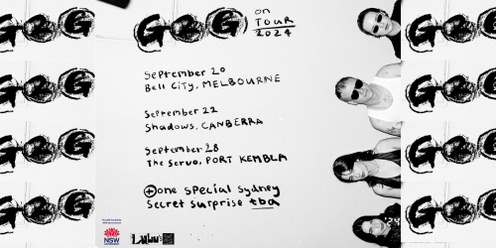 G2G
on
TOUR
2024
September 20
Bell City, MELBOURNE
September 22
Shadows, CANBERRA
September 28
The Servo, PORT KEMBLA
+one special sydney
secret surprise tba
NSW
G2G
G2G
G2G
G2G
G2G
G2G
G2G
G2G